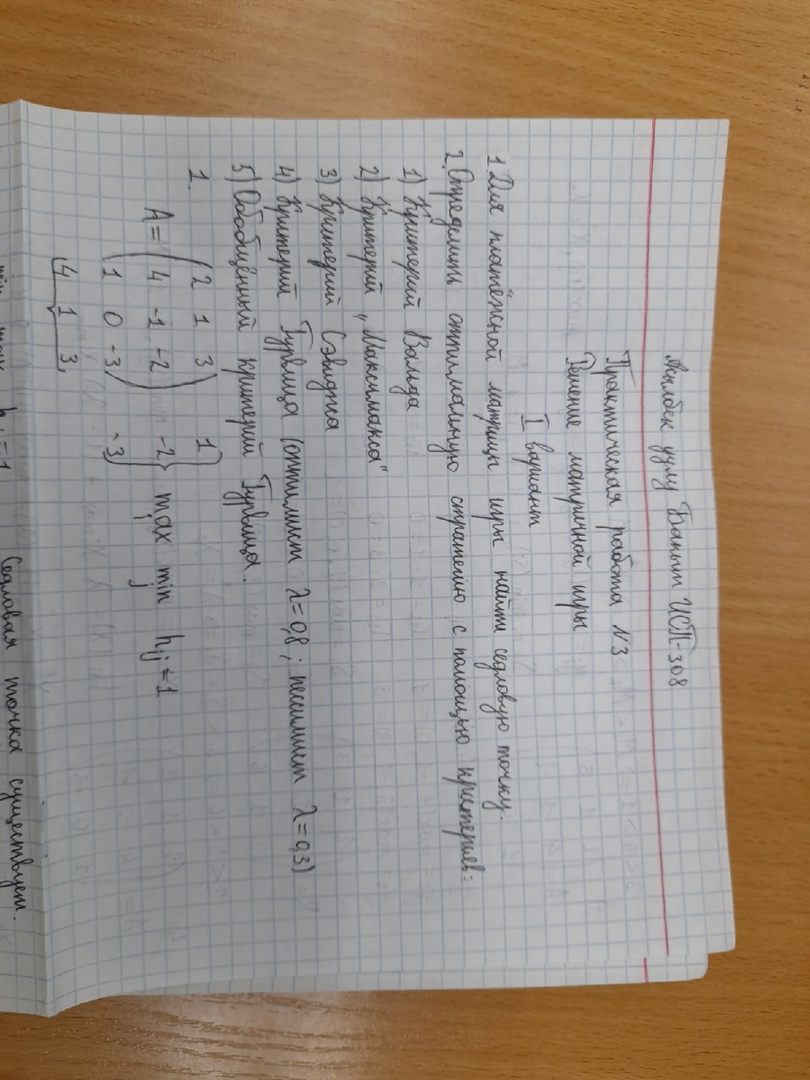 уулу Бакыт ИСТ-308
Практическая работа №3
Решение матричной игры
I вариант
1. Для платёжной матрицы игры найти седловую точку.
2. Определить оптимальную стратегию с помощью критериев:
1) Критерий Вальда
2) Критерий „Максимакса"
3) Критерий Сэвиджа
4) Критерий Гурвица (оптимист λ=0,8; пессимист λ=0,3)
5) Обобщённый критерий Гурвица.
1.
2 1 3 1
A = 4 -1 -2 -2 max min hij = 1
i j
1 0 -3 -3
4 1 3
min max hij = 1 Седловая точка существует.